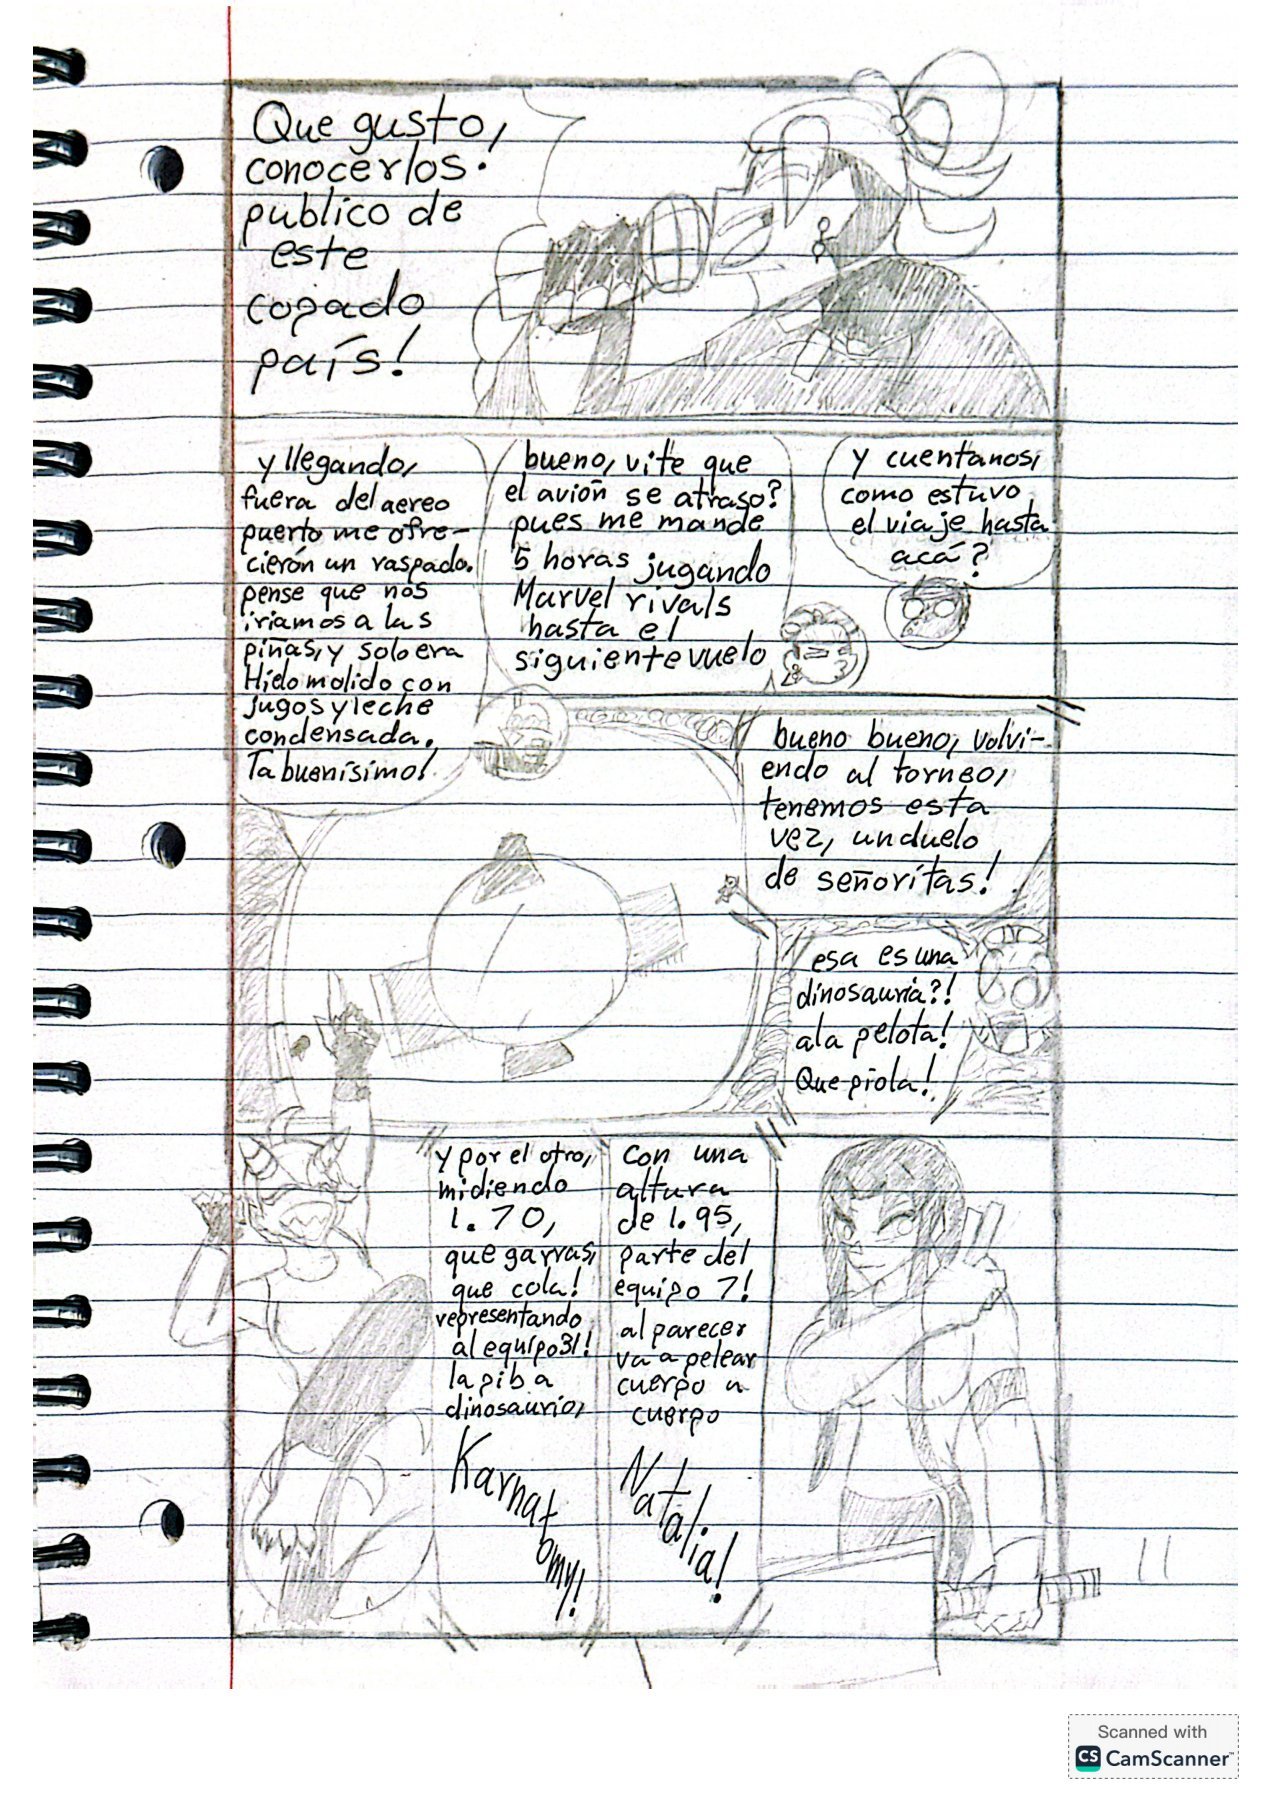 Que gusto,
conocerlos.
publico de
este
copado
país!
y cuentanos,
como estuvo
el viaje hasta
acá?
bueno, vite que
el avión se atraso?
pues me mande
5 horas jugando
Marvel rivals
hasta el
siguiente vuelo
y llegando,
fuera del aereo
puerto me ofre-
cierón un raspado.
pense que nos
iriamos a las
piñas, y solo era
Hielo molido con
jugos y leche
condensada.
Ta buenísimo!
bueno bueno, volvi-
endo al torneo,
tenemos esta
vez, un duelo
de señoritas!
esa es una
dinosauria?!
a la pelota!
Que piola!
Con una
altura
de 1.95,
parte del
equipo 7!
al parecer
va a pelear
cuerpo a
cuerpo
Natalia!
y por el otro,
midiendo
1.70,
que garras,
que cola!
representando
al equipo 31!
la piba
dinosaurio,
Karnatomy!
11
Scanned with
CS CamScanner